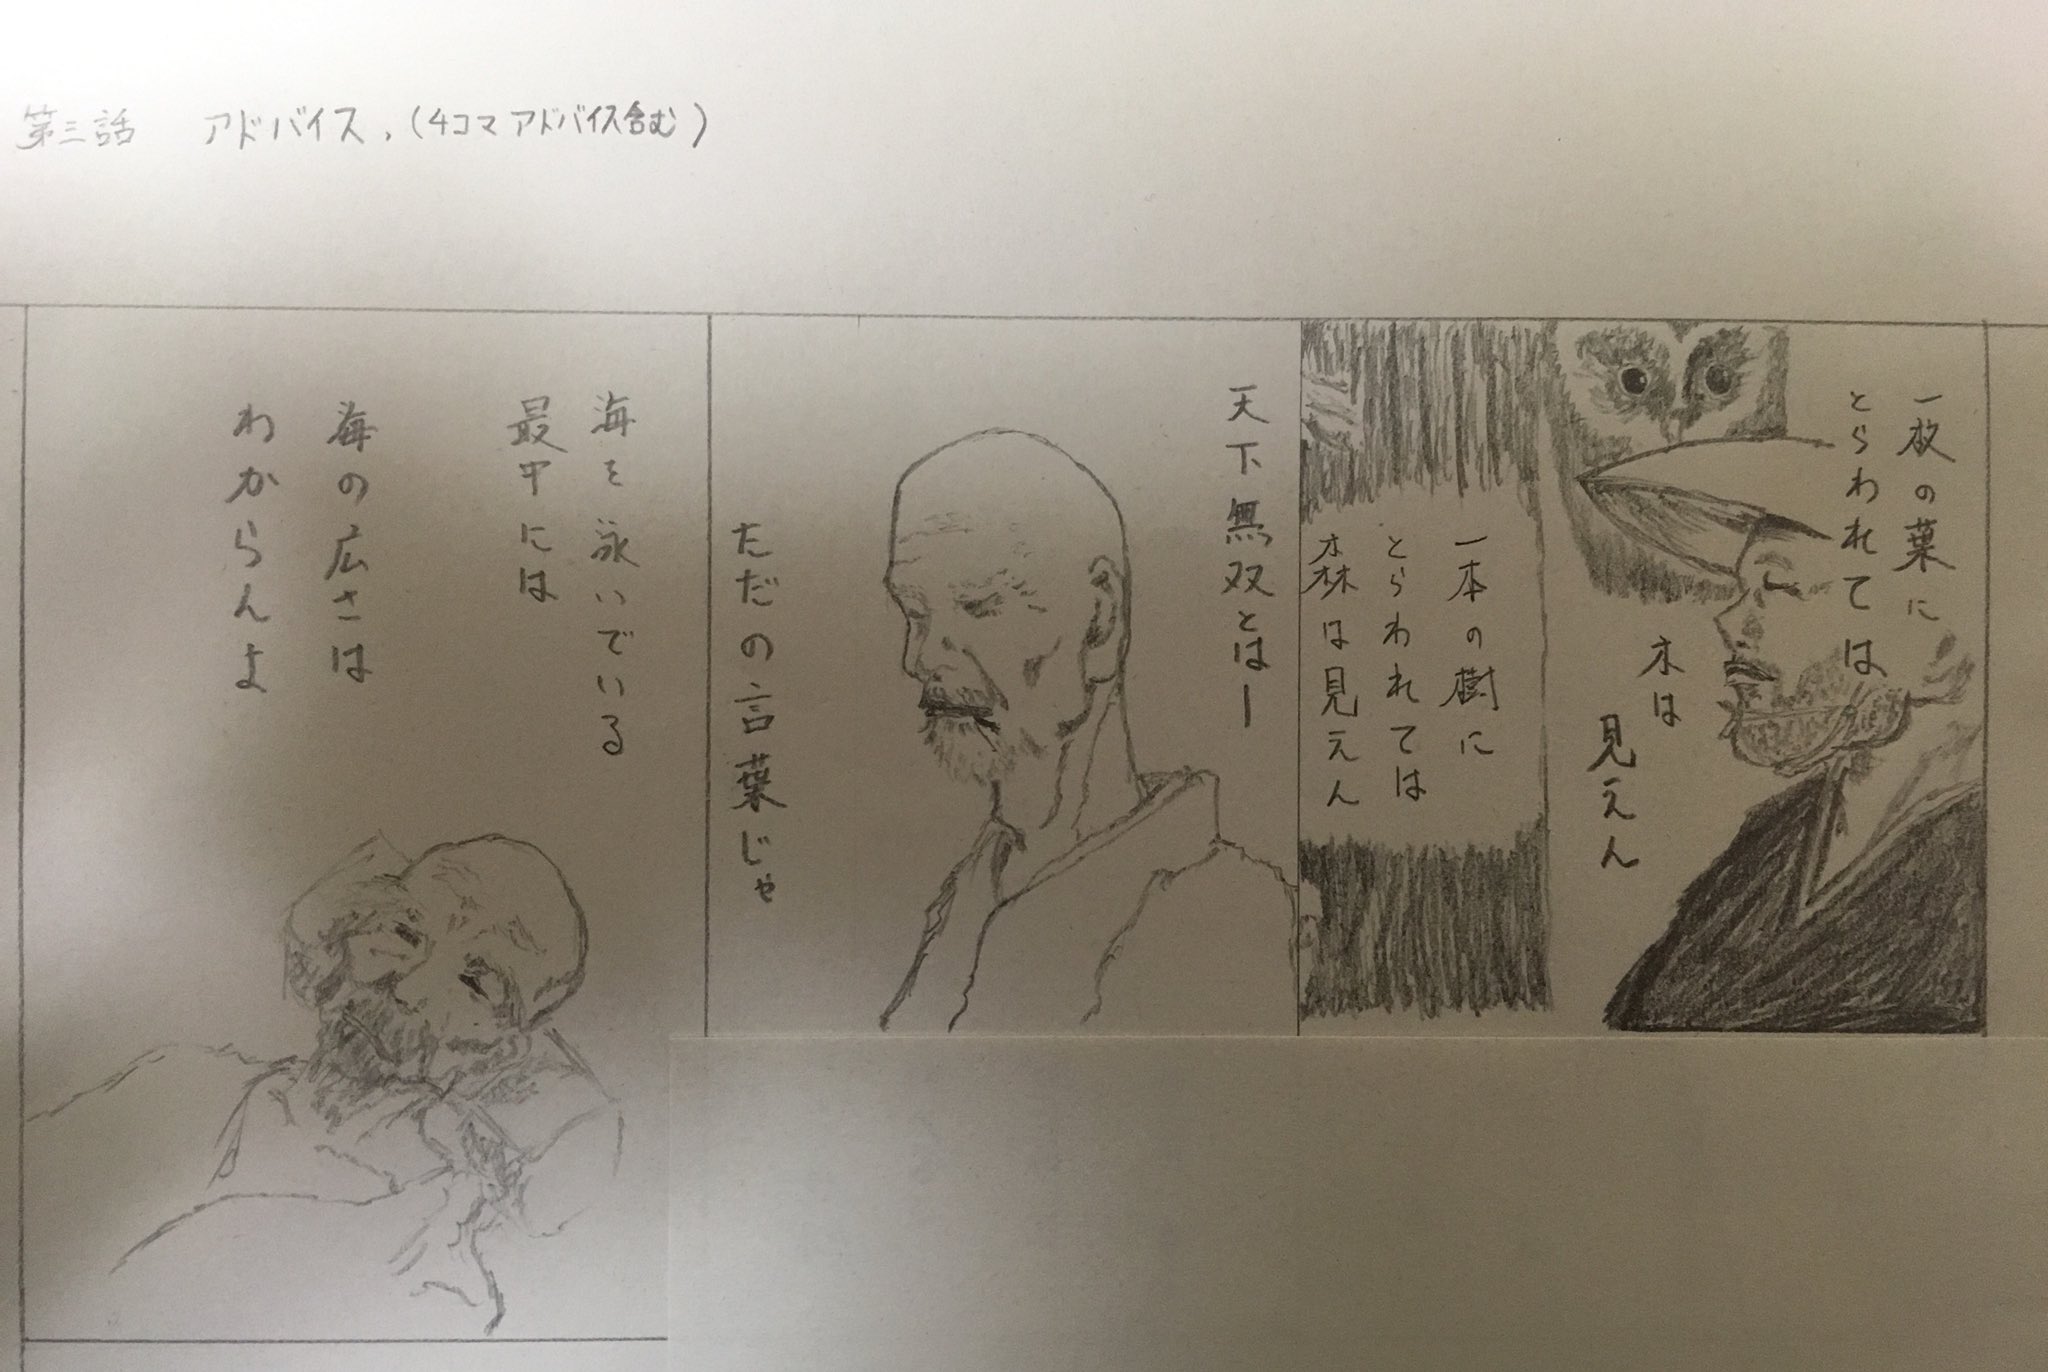 第三話　アドバイス、(4コマ アドバイス含む)
一枚の葉に
とらわれては
木は
見えん
一本の樹に
とらわれては
森は見えん
天下無双とはー
ただの言葉じゃ
海を泳いでいる
最中には
海の広さは
わからんよ